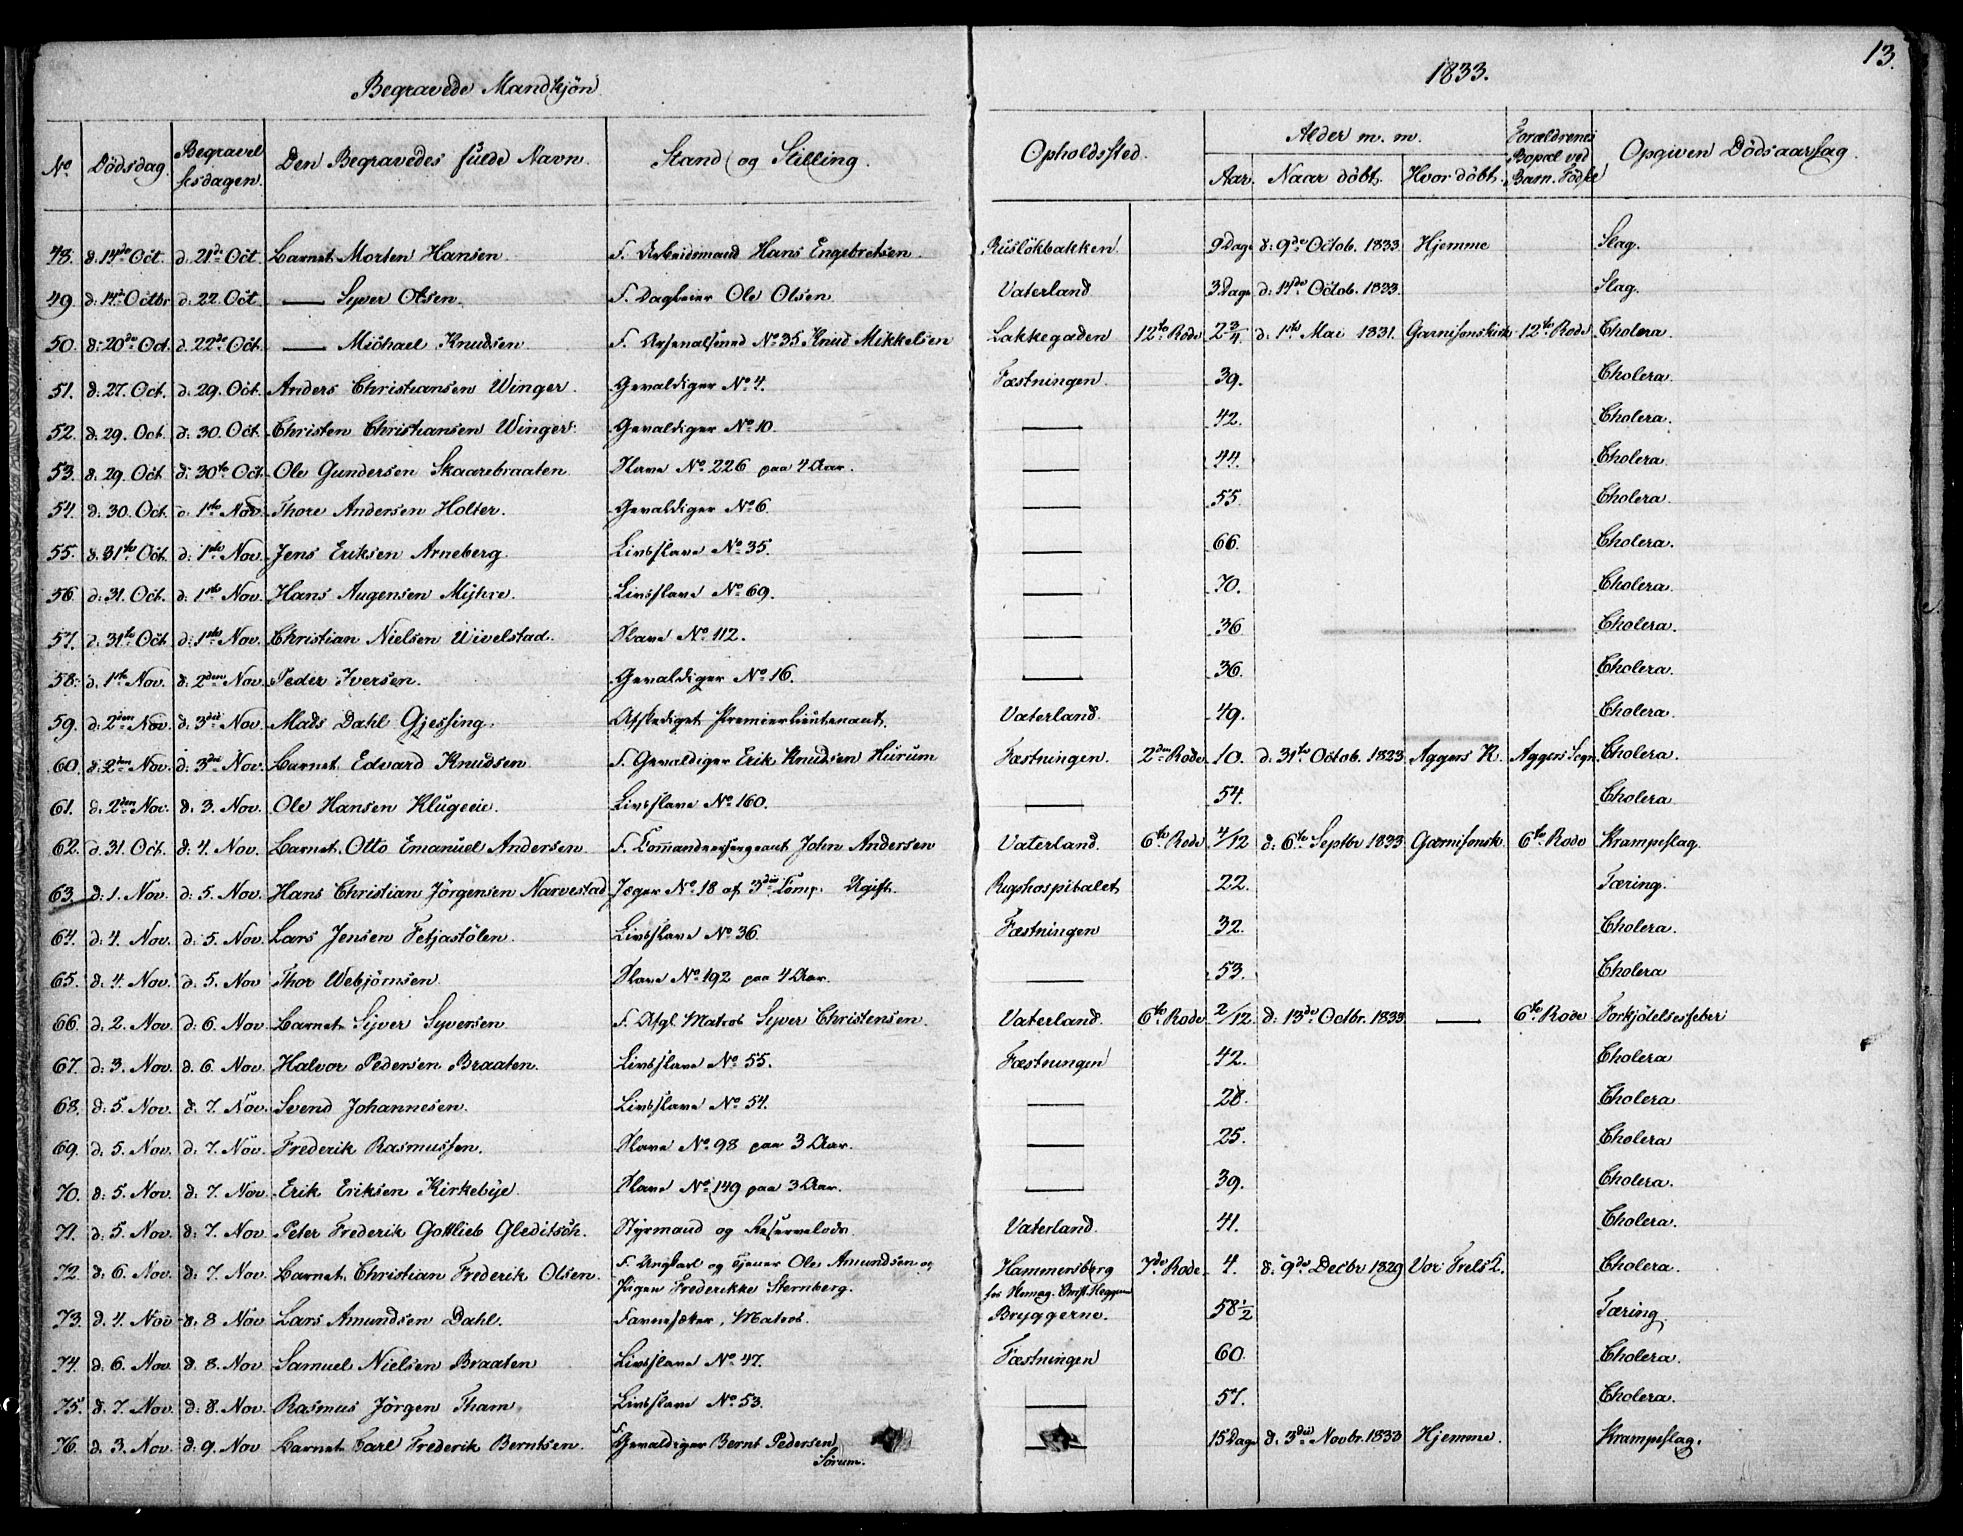 13.
Begravede Mandkjøn 1833.
No Dödsdag. Begravelsesdagen. Den Begravedes fulde Navn. Stand og Stilling. Opholdssted. Alder m. m. Forældrenes Bopæl ved Barn. Födsel Opgiven Dödsaarsag.
Aar. Naar döbt. Hvor döbt.
48. d. 14de Oct. d. 21de Oct Barnet Morten Hansen. F. Arbeidsmand Hans Engebretsen. Rusløkbakken 9 Dage d: 9de Octob. 1833 Hjemme Slag.
49. d: 14de Octbr d: 22. Oct — Syver Olsen. F. Dagleier Ole Olsen Vaterland 3 Dage d: 14de Octob. 1833. Slag.
50. d: 20de Oct. d. 22de Oct. — Michael Knudsen F. Arsenalsmed No 35 Knud Mikkelsen Lakkegaden 12te Rode 2 3/4 d: 1ste Mai 1831. Garnisonskirk 12te Rode Cholera.
51. d: 27. Oct. d: 29. Oct. Anders Christiansen Winger. Gevaldiger No 4. Fæstningen. 39. Cholera.
52. d. 29. Oct. d: 30. Oct. Christen Christiansen Winger. Gevaldiger No 10. — 42. Cholera.
53. d. 29. Oct d: 30te Oct. Ole Gundersen Skaarebraaten. Slave No 226 paa 4 Aar. — 44. Cholera.
54. d: 30. Oct. d: 1ste Nov. Thore Andersen Holter. Gevaldiger No 6. — 55. Cholera.
55. d: 31te Oct. d: 1ste Nov. Jens Eriksen Arneberg. Livsslave No 35. — 66. Cholera.
56. d: 31. Oct. d: 1ste Nov. Hans Augensen Myhre. Livsslave No 69. — 70. Cholera.
57. d: 31te Oct d: 1ste Nov. Christian Nielsen Wivelstad. Slave No 112. — 36 Cholera.
58. d. 1ste Nov. d. 2den Nov. Peder Iversen. Gevaldiger No 16. — 36. Cholera.
59. d: 2den Nov. d: 3die Nov. Mads Dahl Gjessing. Afskediget Premierlieutenant. Vaterland. 49. Cholera.
60. d: 2den Nov. d: 3die Nov. Barnet Edvard Knudsen F. Gevaldiger Erik Knudsen Hurum Fæstningen. 2den Rode. 10. d: 31te Octob. 1823. Aggers K. Aggers Sogn Cholera.
61. d: 2den Nov. d: 3. Nov. Ole Hansen Klugeeie. Livsslave No 160. — 54. Cholera
62. d. 31 Oct. d: 4. Nov. Barnet. Otto Emanuel Andersen F. Commandeersergeant John Andersen Vaterland. 6te Rode 4/12 d: 6te Septbr 1833 Garnisonsk. 6te Rode Krampeslag.
63. d: 1. Nov. d: 5. Nov. Hans Christian Jörgensen Narvestad Jæger No 18 af 3die Comp. Ugift. Rigshospitalet 22. Tæring.
64. d. 4. Nov. d: 5. Nov. Lars Jensen Fetjastölen. Livsslave No 36. Fæstningen 32. Cholera.
65. d: 4. Nov. d: 5. Nov Thor Webjörnsen. Slave No 192 paa 4 Aar. — 53. Cholera
66. d: 2. Nov. d: 6. Nov Barnet Syver Syversen F. Afgl. Matros Syver Christensen. Vaterland. 6te Rode 2/12 d: 13de Octbr. 1833 — 6te Rode Forkjölelsesfeber
67. d: 3. Nov. d: 6. Nov. Halvor Pedersen Braaten. Livsslave No 55. Fæstningen 42. Cholera
68. d: 5. Nov. d: 7. Nov. Svend Johannesen. Livsslave No 54. — 28. Cholera
69. d: 5. Nov. d: 7. Nov. Frederik Rasmussen. Slave No 98 paa 3 Aar. — 25. Cholera
70. d: 5. Nov. d: 7. Nov. Erik Eriksen Kirkebye. Slave No 149 paa 3 Aar. — 39. Cholera.
71. d: 5. Nov. d: 7. Nov. Peter Frederik Gottlieb Gleditsch. Styrmand og Reservelods. Vaterland. 41. Cholera.
72. d: 6. Nov. d: 7. Nov. Barnet. Christian Frederik Olsen. F. Ungkarl og Tjener Ole Amundsen og Pigen Frederikke Sternberg. Hammersberg 7de Rode 4. d: 9de Decbr 1829 Vor Frels K. Cholera.
73. d. 4. Nov d. 8. Nov Lars Amundsen Dahl. Matros. Bryggerne. 58 1/2 Tæring.
74. d: 6. Nov. d. 8. Nov. Samuel Nielsen Braaten Livsslave No 47. Fæstningen 60. Cholera.
75. d: 7. Nov. d: 8. Nov. Rasmus Jörgen Tham. Livsslave No 53. — 57. Cholera.
76. d. 3. Nov. d: 9. Nov Barnet Carl Frederik Berntsen. F. Gevaldiger Bernt Pedersen Sörum. — 15 Dage d: 3die Novbr. 1833 Hjemme. Krampeslag.